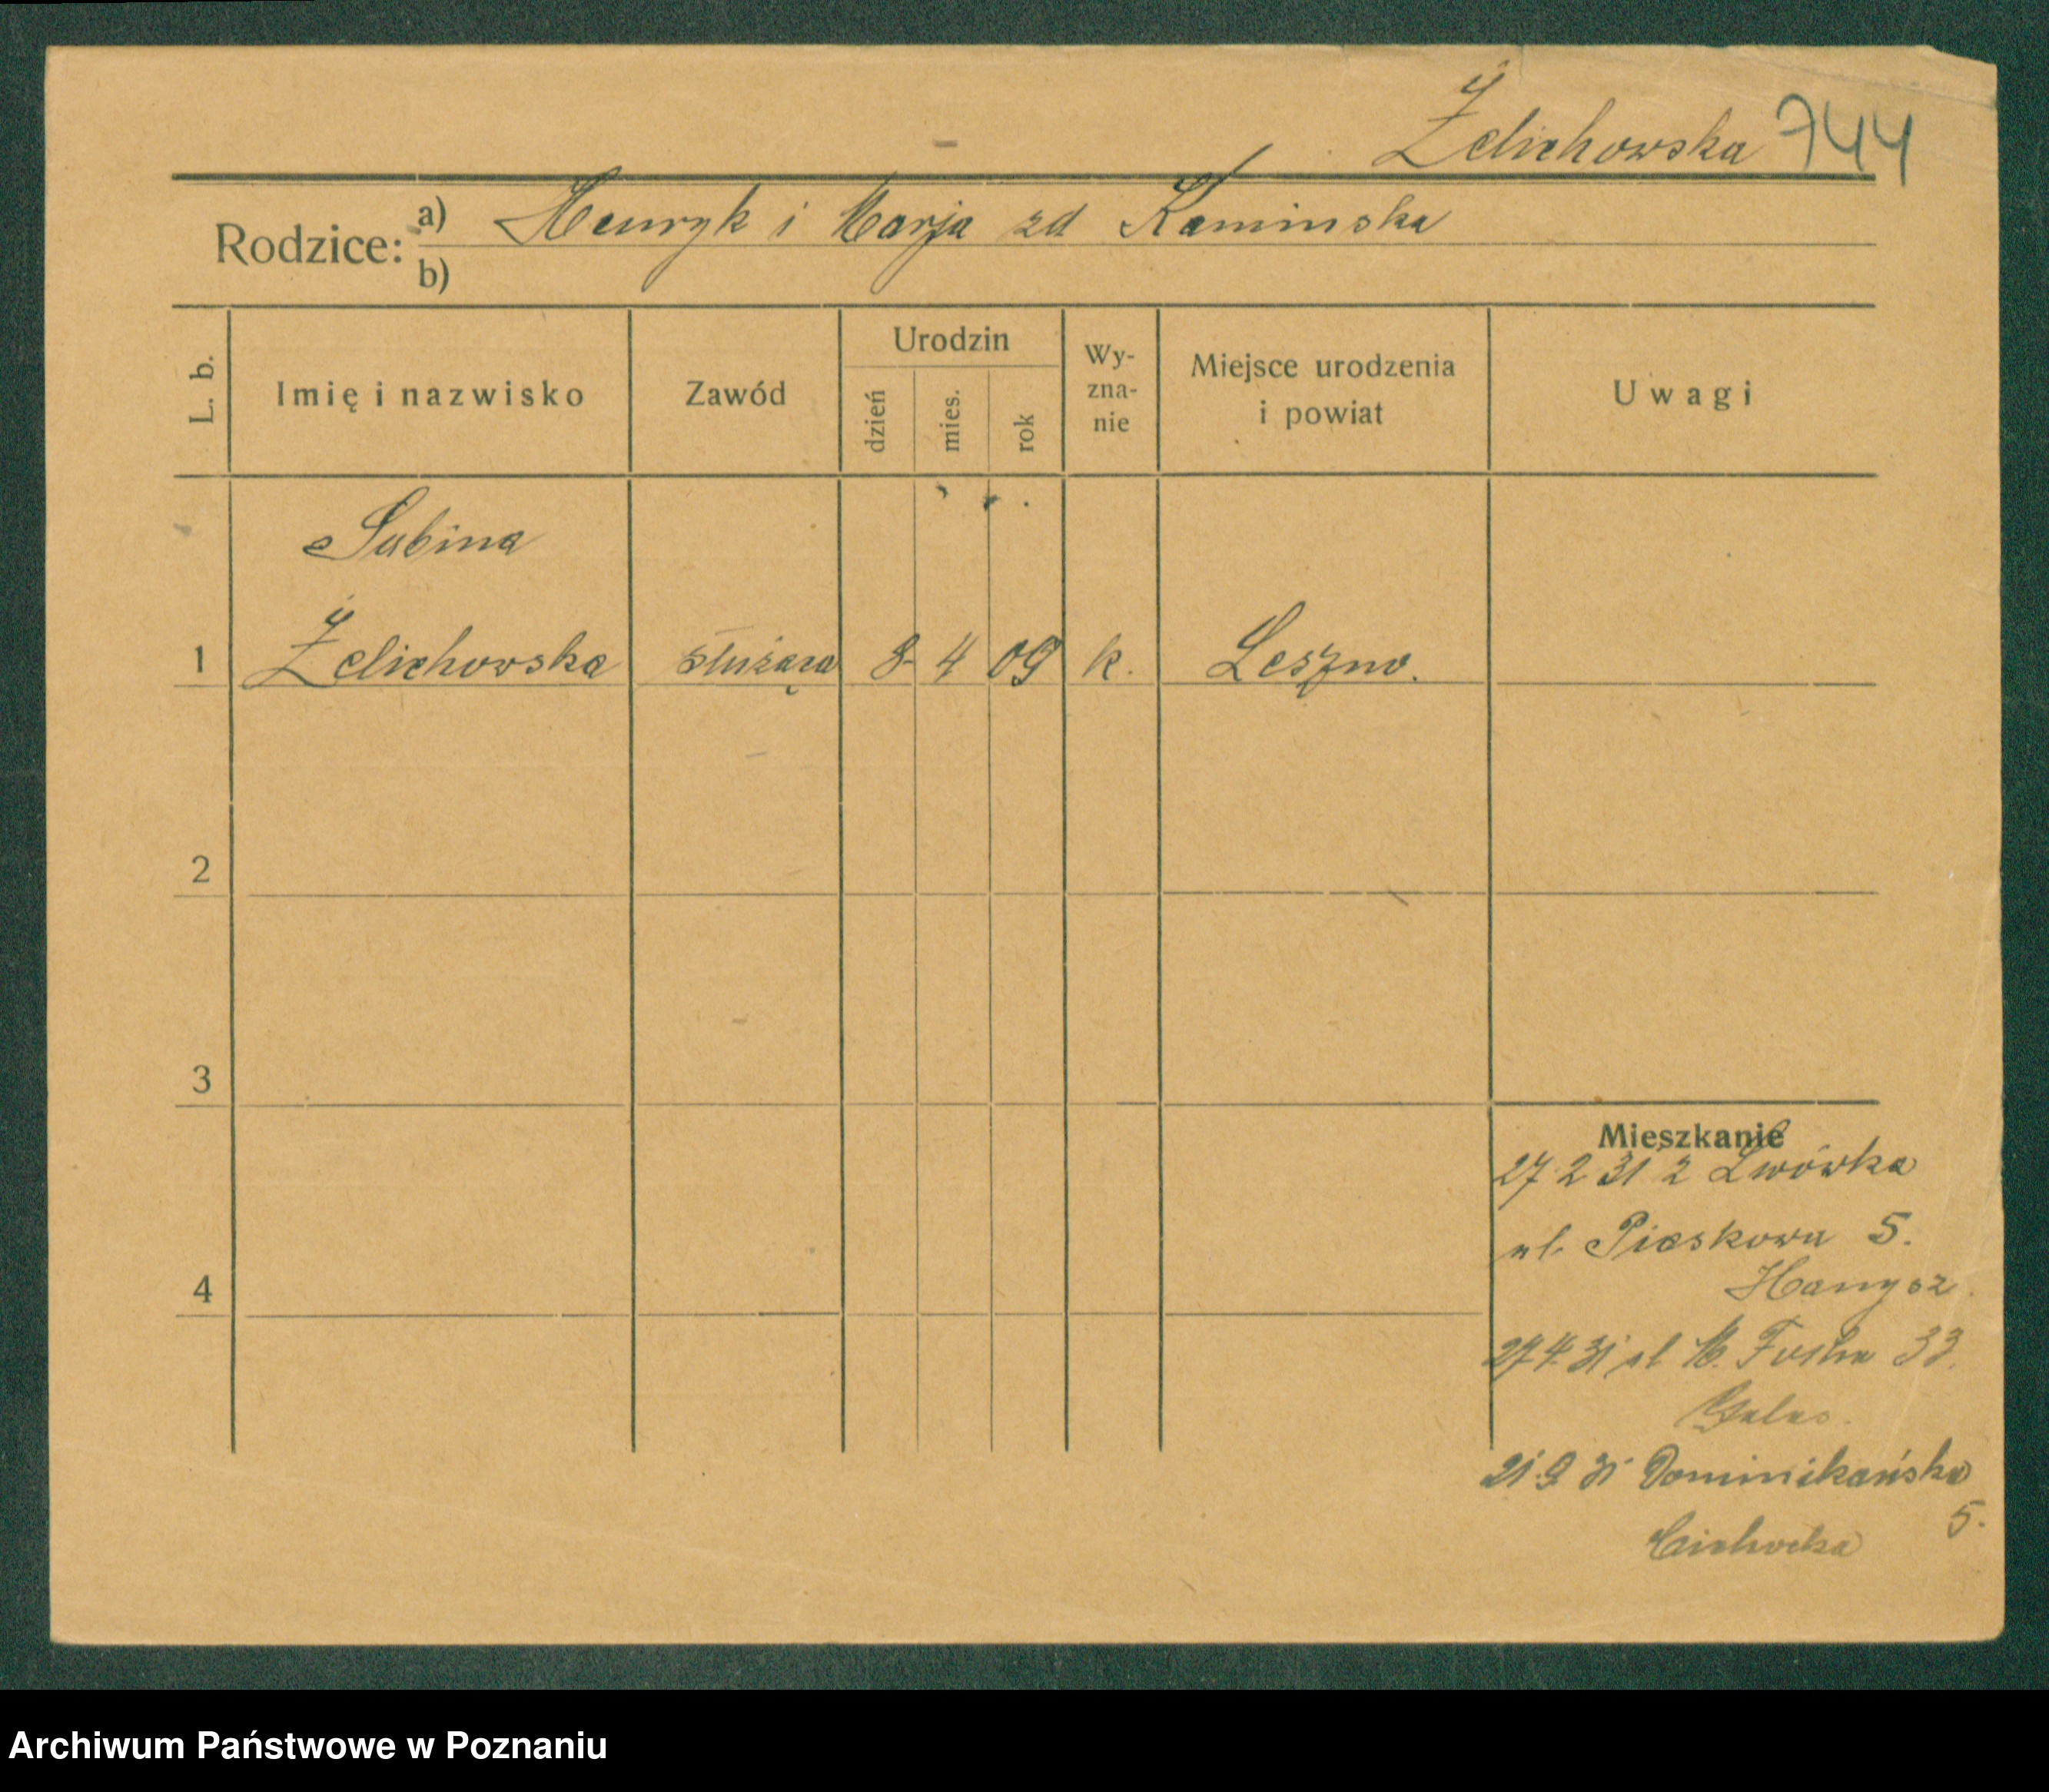 Żelichowska 744
Rodzice: a) Henryk i Marja zd Kaminska
b)
L. b.
Imię i nazwisko
Zawód
Urodzin
dzień
mies.
rok
Wy-
zna-
nie
Miejsce urodzenia
i powiat
Uwagi
Sabina
1 Żelichowska służąca 8 4 09 k. Leszno.
2
3
4
Mieszkanie
27 2 31 z Lwówka
ul. Piaskowa 5.
Hanysz
27 4 31 ul M. Focha 33.
21 9 31 Dominikańska
5.
Cichocka
Archiwum Państwowe w Poznaniu